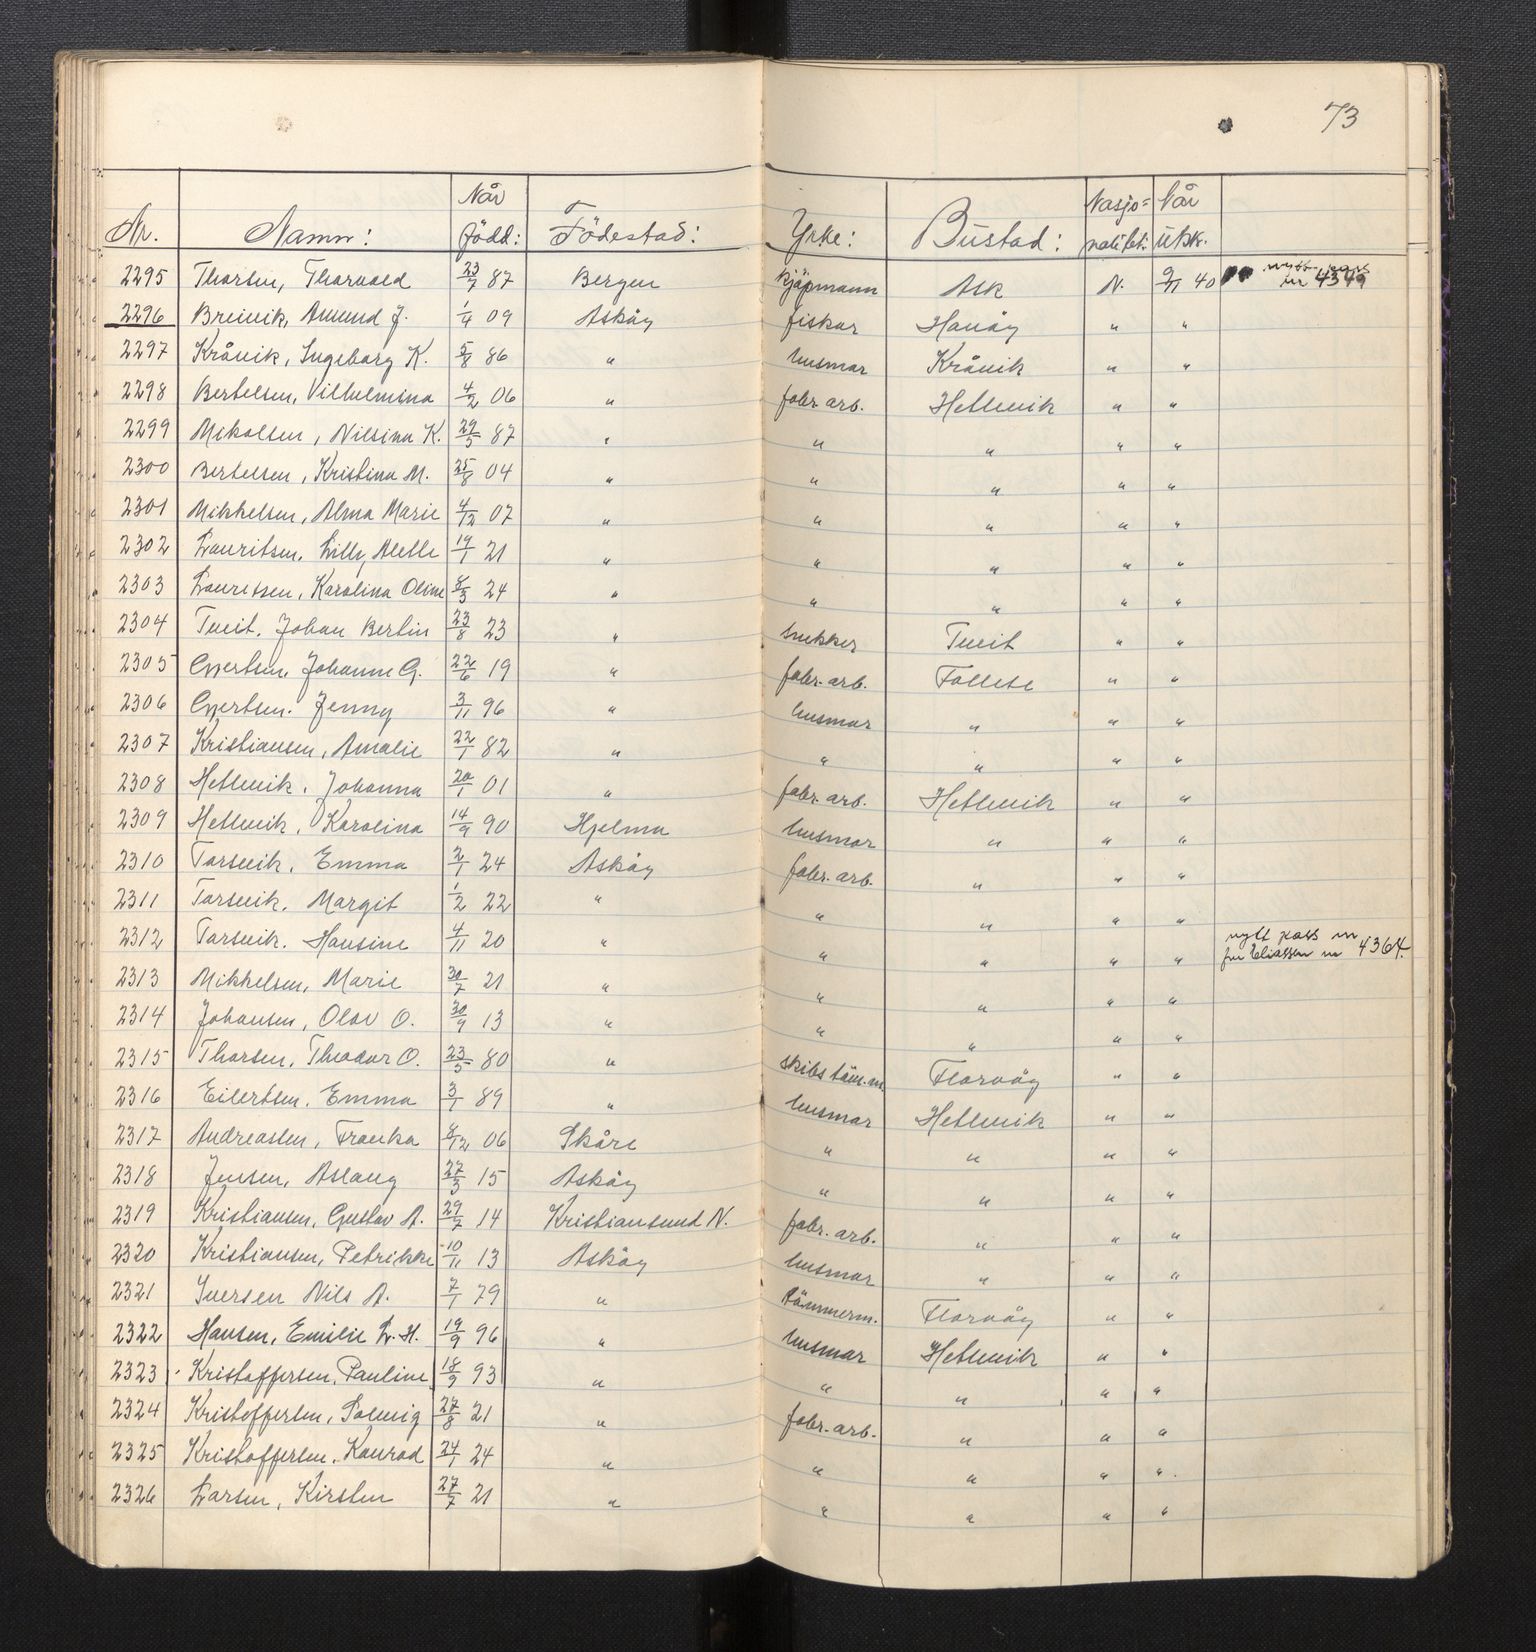 73
Nr. Namn: Når född: Födestad: Yrke: Bustad: Nasjo=nalitet: Når utsk.
2295 Thorsen, Thorvald 23/7 87 Bergen kjöpmann Ask N. 9/11 40 nytt pass nr 4349
2296 Breivik, Amund J. 1/4 09 Asköy fiskar Hanöy " "
2297 Kråvik, Ingeborg K. 5/8 86 " husmor Kråvik " "
2298 Bertelsen, Vilhelmina 4/2 06 " fabr. arb. Hetlevik " "
2299 Mikalsen, Nilsina K. 29/5 87 " " " " "
2300 Bertelsen, Kristina M. 25/8 04 " " " " "
2301 Mikkelsen, Alma Marie 4/12 07 " " " " "
2302 Lauritsen, Lilly Aletle 19/1 21 " " " " "
2303 Lauritsen, Karolina Oline 8/3 24 " " " " "
2304 Tveit, Johan Bertin 23/8 23 " snekker Tveit " "
2305 Evertsen, Johanne G. 22/6 19 " fabr. arb. Follese " "
2306 Evertsen. Jenny 3/11 96 " husmor " " "
2307 Kristiansen, Amalie 22/1 82 " " " " "
2308 Hetlevik, Johanna 20/1 01 " fabr. arb. Hetlevik " "
2309 Hetlevik, Karolina 14/9 90 Hjelma husmor " " "
2310 Torsvik, Emma 2/1 24 Asköy fabr. arb. " " "
2311 Torsvik. Margit 1/2 22 " " " " "
2312 Torsvik. Hansine 4/11 20 " " " " " nytt pass nr fru Eliassen nr 4364.
2313 Mikkelsen, Marie 30/7 21 " " " " "
2314 Johansen, Olav O. 30/9 13 " " " " "
2315 Thorsen, Theodor O. 23/5 80 " skibstöm.m Florvåg " "
2316 Eilertsen. Emma 3/1 89 " husmor Hetlevik " "
2317 Andreassen, Franka 8/12 06 Skåre " " " "
2318 Jensen, Aslaug 27/3 15 Asköy " " " "
2319 Kristiansen, Gustav A. 29/7 14 Kristiansund N. fabr. arb. " " "
2320 Kristiansen, Petrikke 10/11 13 Asköy husmor " " "
2321 Iversen Nils A. 7/1 79 " tömmerm. Florvåg " "
2322 Hansen, Emilie L. H. 19/9 96 " husmor Hetlevik " "
2323 Kristoffersen, Pauline 18/9 93 " " " " "
2324 Kristoffersen, Solveig 27/8 21 " fabr. arb. " " "
2325 Kristoffersen, Konrad 24/1 24 " " " " "
2326 Larsen, Kirsten 27/7 21 " " " " "